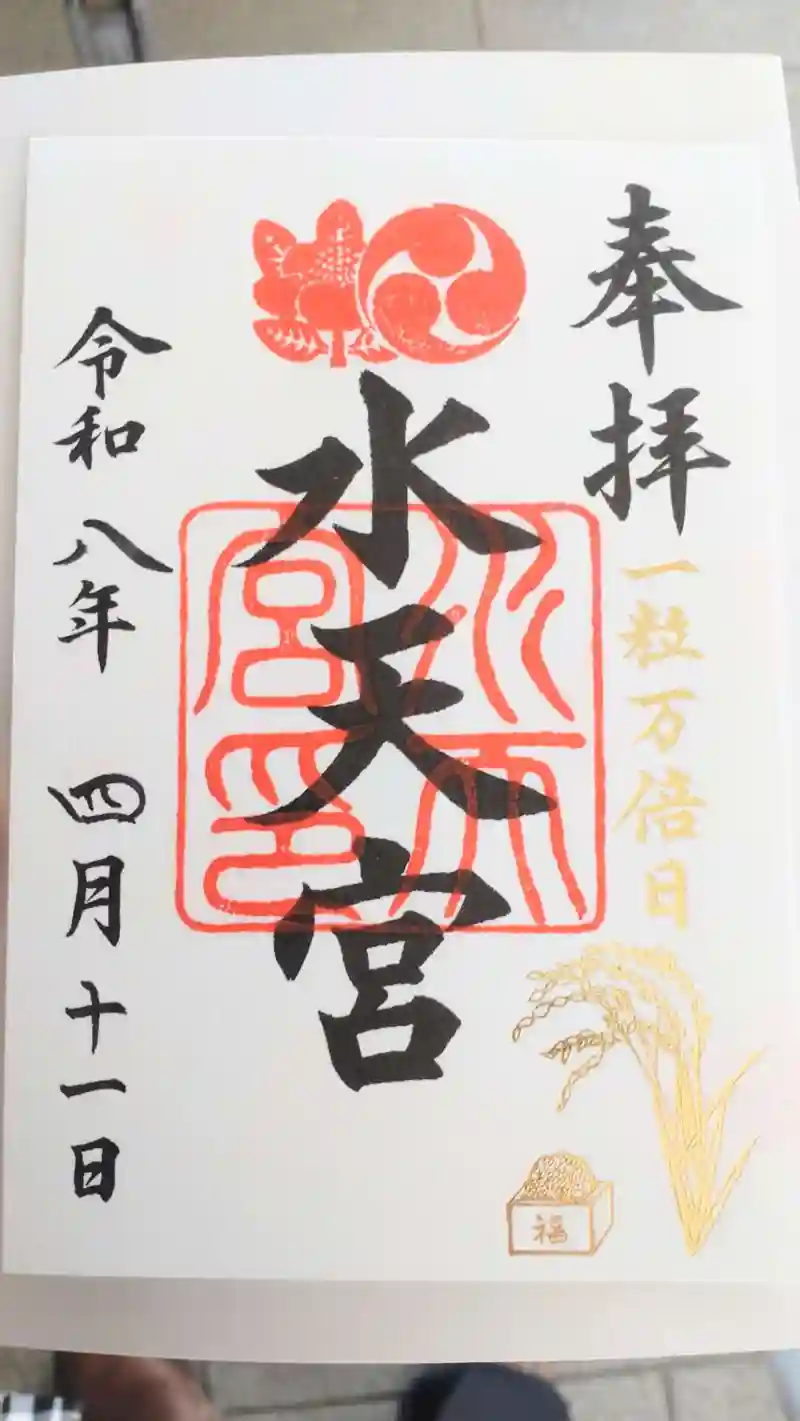 奉拝
一粒万倍日
福
水天宮
水天宮印
令和八年 四月十一日